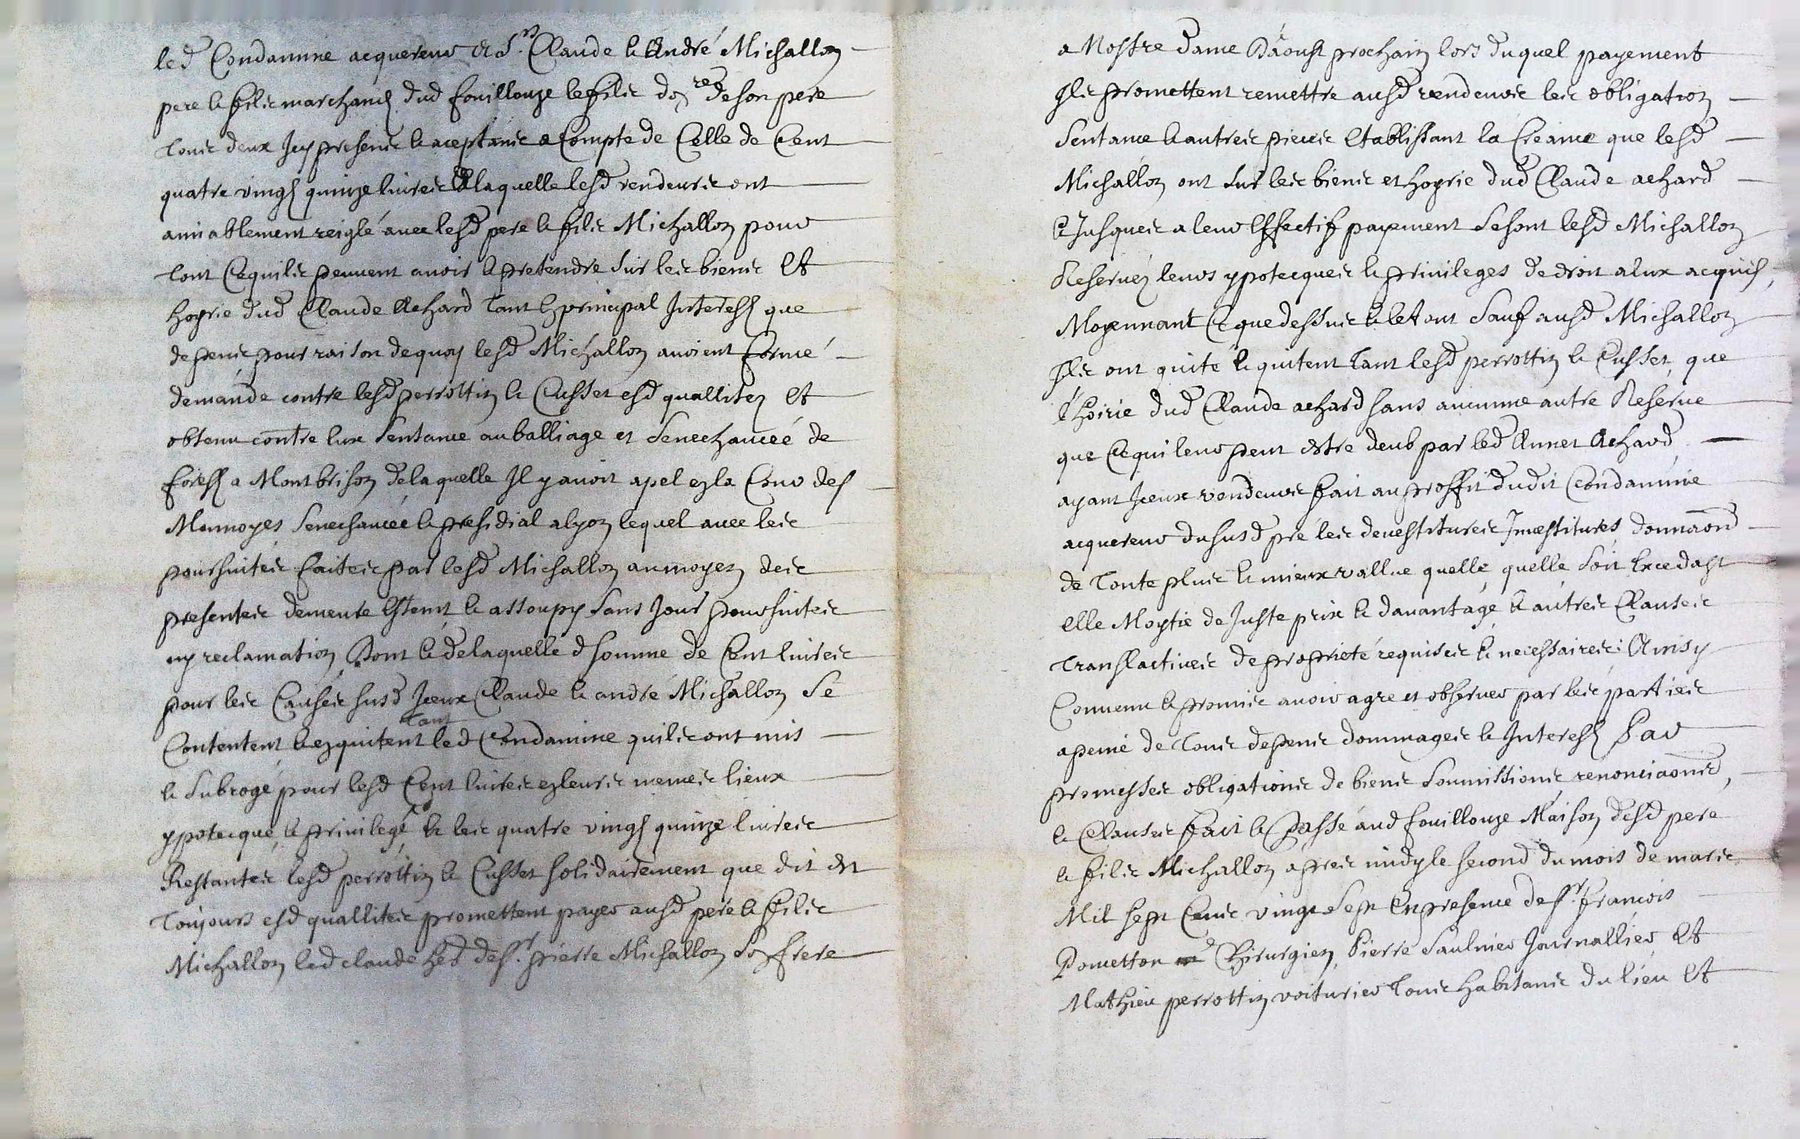 led Condamine acquereur et a Sr. Claude & André Michallon
pere & fils marchands dud fouillouze le fils de son pere
tous deux Icy presents & aceptants a Compte de Celle de Cent
quatre vingt quinze livres a laquelle lesd vendeurs ont
amiablement reiglé avec lesd pere & fils Michallon pour
tout Cequils peuvent avoir & pretendre sur les biens Et
hoyrie dud Claude Achard tant En principal Interest que
depens pour raison dequoy lesd Michallon avoient formé
demande contre lesd perrottin & Cusset esd quallitez Et
obtenu contre Eux Sentance au balliage et Senechaucéé de
forest a Montbrison de laquelle Il y avoit apel en la Cour des
Monnoyes Senechaucéé & presidial a lyon lequel avec les
poursuittes faites par lesd Michallon au moyen des
presentes demeure Esteint & assoupy sans Jour poursuittes
ny reclamation Dont & de laquelle d somme de Cent livres
pour les Causes susd Iceux Claude & andré Michallon Se
Contentent & en quitent tant led Condamine quils ont mis
& Subrogé pour lesd Cent livres en leurs memes lieux
ypotecque, & privilegé, Et les quatre vingt quinze livres
Restantes lesd perrottin & Cusset solidairement que dit est
Toujours esd quallites promettent payer ausd pere & fils
Michallon led claude her de Sr. pierre Michallon Son frere
a Nostre dame Daoust prochain lors duquel payement
Ils promettent remettre ausd vendeurs les obligation
Sentance & autres pieces Etablissant la Creance que lesd
Michallon ont sur les biens et hoyrie dud Claude achard
& Jusques a leur Effectif payement Se sont lesd Michallon
Reservéz leurs ypotecques & privileges de droit a Eux acquis,
Moyennant Ce que dessus Et sauf ausd Michallon
Ils ont quité & quitent tant lesd perrottin & Cusset, que
l'hoirie dud Claude achard sans aucunne autre Reserve
que Cequi leur peut estre deub par led Annet Achard
ayant Iceux vendeurs fait au proffit dudit Condamine
acquereur du susd pre les devestitures Investitures, donnaõn
de toute plus & mieux vallue quelle, quelle soit Excedast
elle Moytié de Juste prix & davantage & autres Clauses
Translatives de proprieté requises & necessaires: Ainsy
Convenu & promis avoir agre et observer par les parties
a peine de tous depens dommages & Interest Par
promesses obligations de biens Soumissions renonciaõns,
& Clauses fait & Passé aud fouillouze Maison desd pere
& fils Michallon apres midy le second du mois de mars
Mil sept Cens vingt Sept En presence de Sr. francois
Dometton Chirurgien, Pierre Saulnier Journallier, Et
Mathieu perrottin voiturier tous habitans du lieu Et